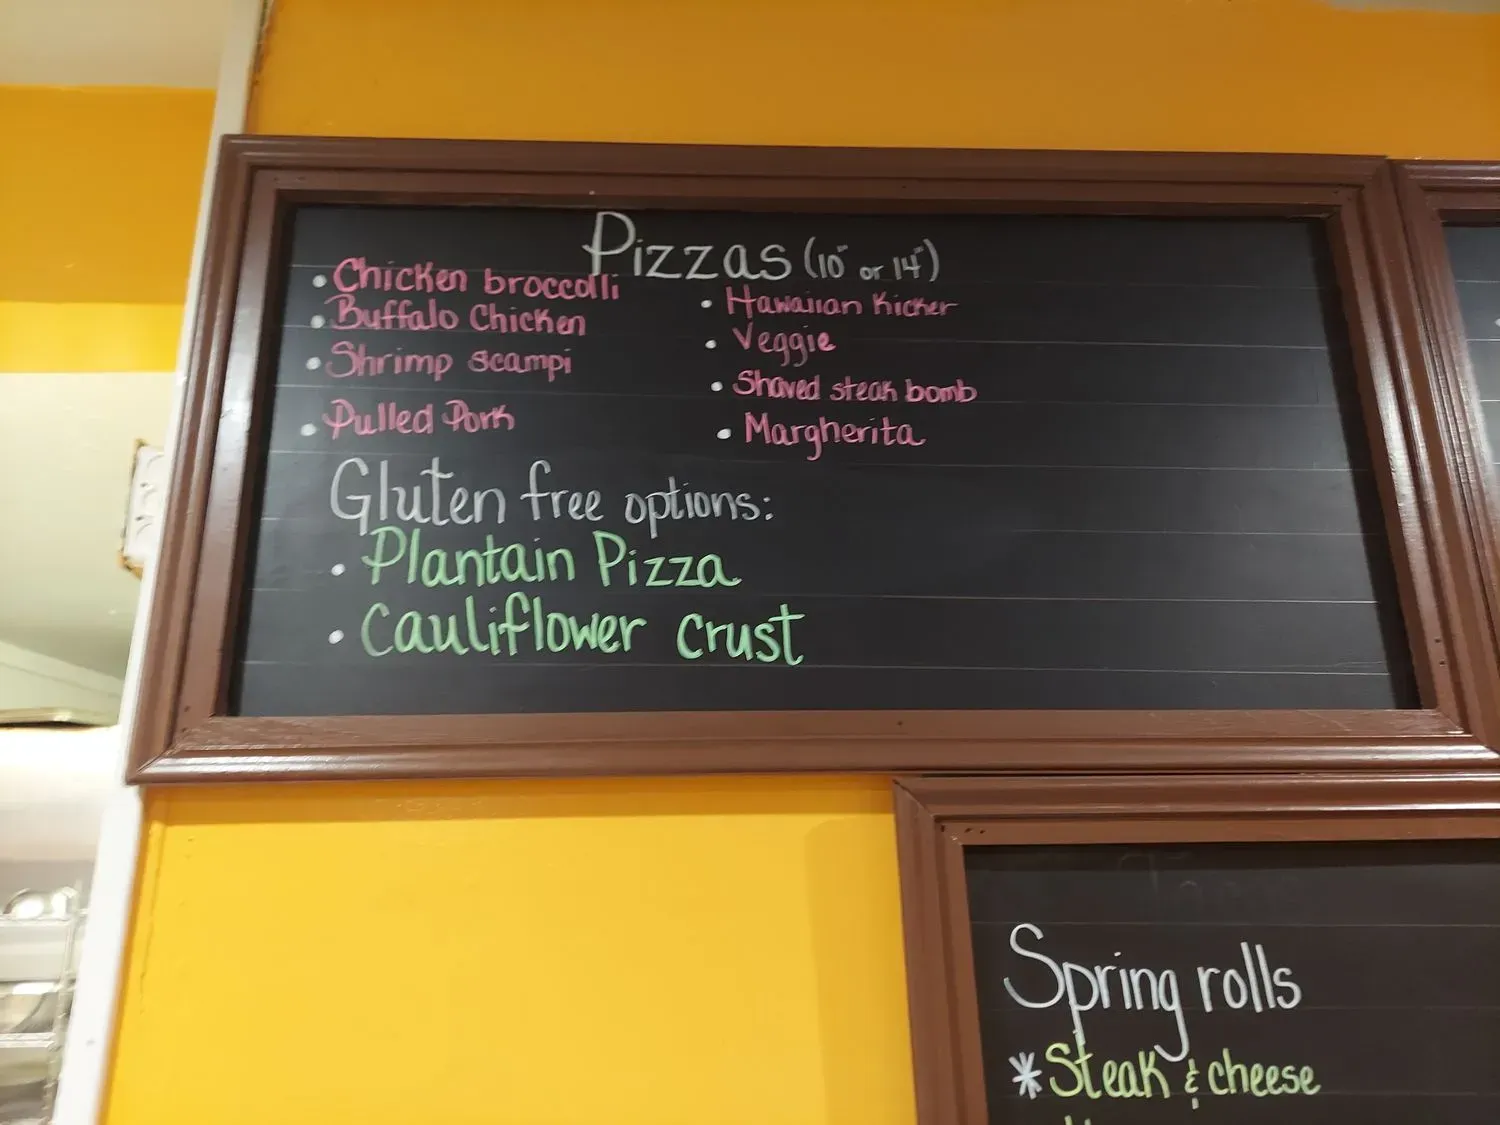 Pizzas (10" or 14")
• Chicken broccolli
• Buffalo Chicken
• Shrimp scampi
• Pulled Pork
• Hawaiian Kicker
• Veggie
• Shaved steak bomb
• Margherita
Gluten free options:
• Plantain Pizza
• Cauliflower crust
Spring rolls
* Steak & cheese